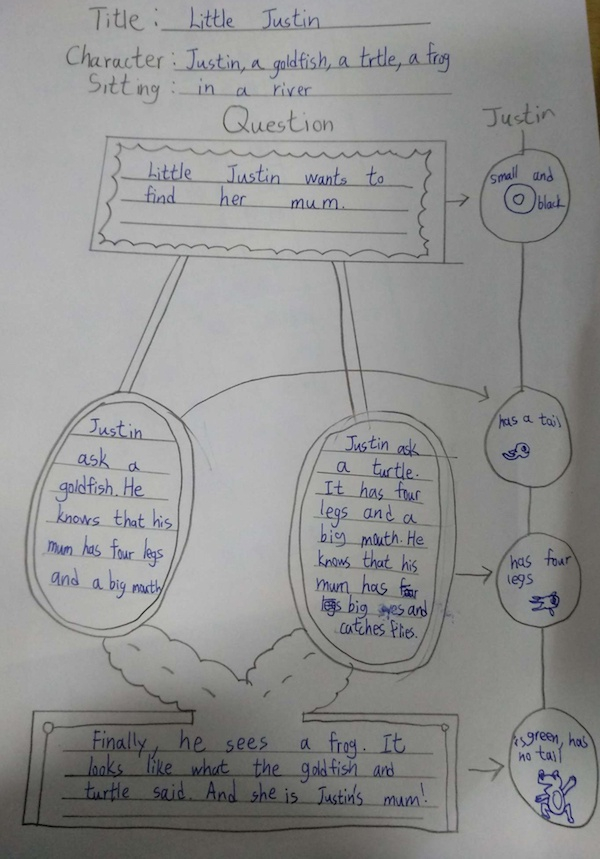 Title: Little Justin
Character: Justin, a goldfish, a trtle, a frog
Sitting: in a river
Question
Little Justin wants to
find her mum.
Justin
small and
black
has a tail
has four
legs
is green, has
no tail
Justin
ask a
goldfish. He
knows that his
mum has four legs
and a big mouth
Justin ask
a turtle.
It has four
legs and a
big mouth. He
knows that his
mum has
big eyes and
catches flies.
Finally, he sees a frog. It
looks like what the goldfish and
turtle said. And she is Justin's mum!